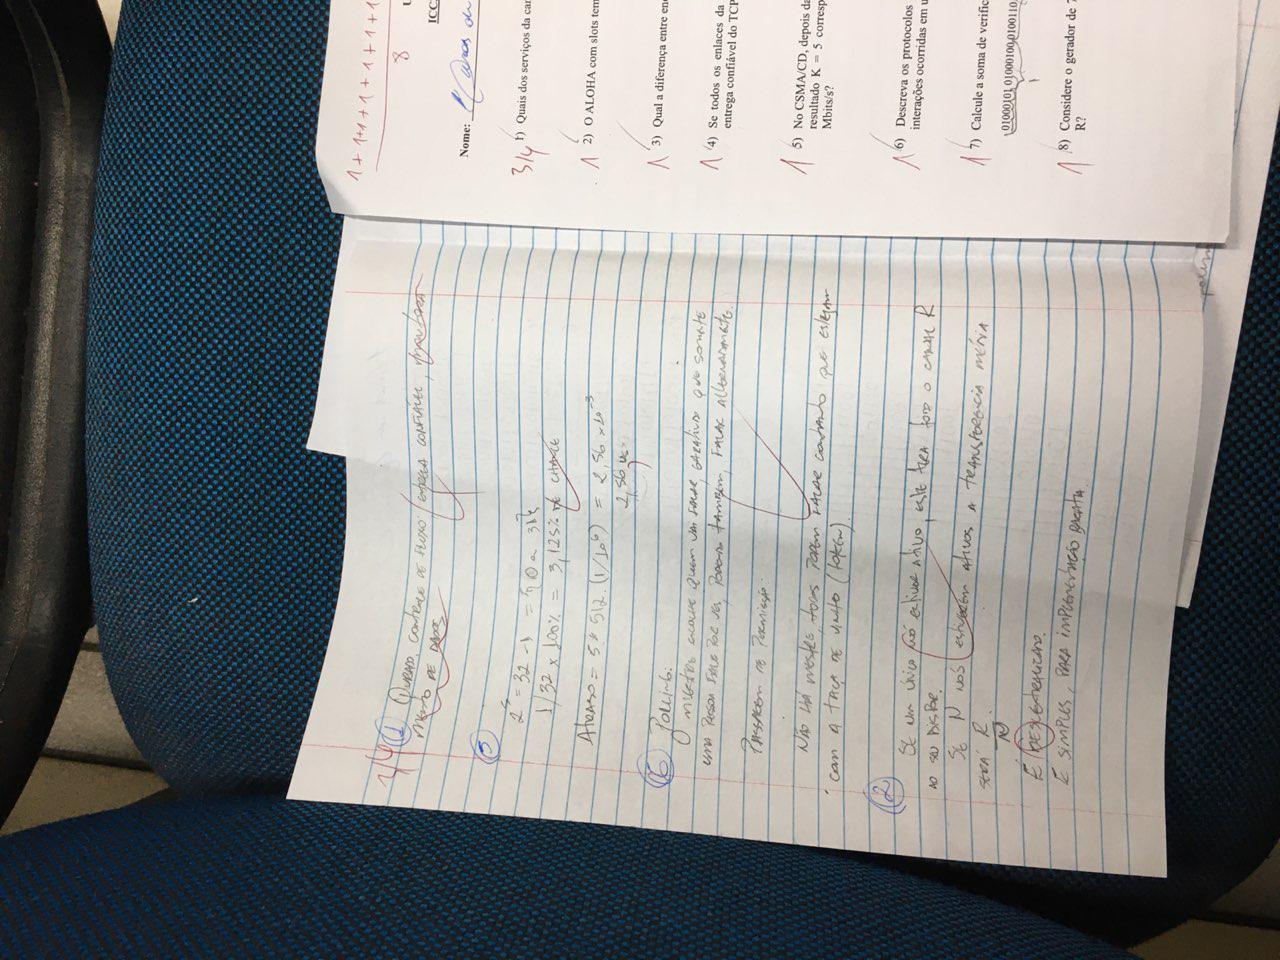 3/4 1 Quadro, controle de fluxo, entrega confiável,
mento de dados
5
2⁵ = 32 - 1 = 0 a 31
1/32 x 100% = 3,125% de chance
Atraso = 5 * 512 . (1/10⁶) = 2,56 x 10⁻³
2,56
6 Polling:
mestre escolhe quem vai falar, que somente
uma pessoa fale por vez, podendo também, falar alternadamente.
Passagem de Permissão.
Não há mestre, todos podem falar contanto que estejam
com a taça de vinho (token).
2
Se um único nó estiver ativo, este terá todo o canal R
ao seu dispor.
Se N nós estiverem ativos a transferência média
será R
N
É descentralizado.
É simples, para implementação barata.
1 + 1+1 + 1 + 1 + 1 + 1
8
U
ICC
Nome:
3/4 1) Quais dos serviços da ca
1 2) O ALOHA com slots tem
1 3) Qual a diferença entre en
1 4) Se todos os enlaces da
entrega confiável do TCP
1 5) No CSMA/CD, depois da
resultado K = 5 corresp
Mbits/s?
1 6) Descreva os protocolos
interações ocorridas em u
1 7) Calcule a soma de verific
01000101 01000100 0100110
1 8) Considere o gerador de 7
R?